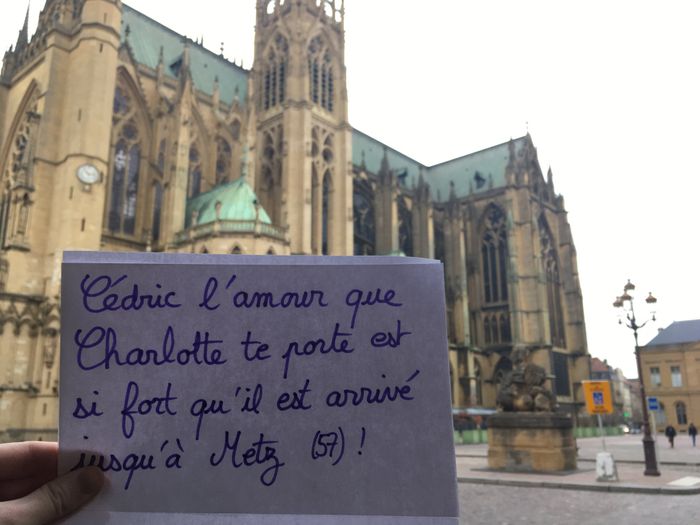 Cédric l'amour que
Charlotte te porte est
si fort qu'il est arrivé
jusqu'à Metz (57) !